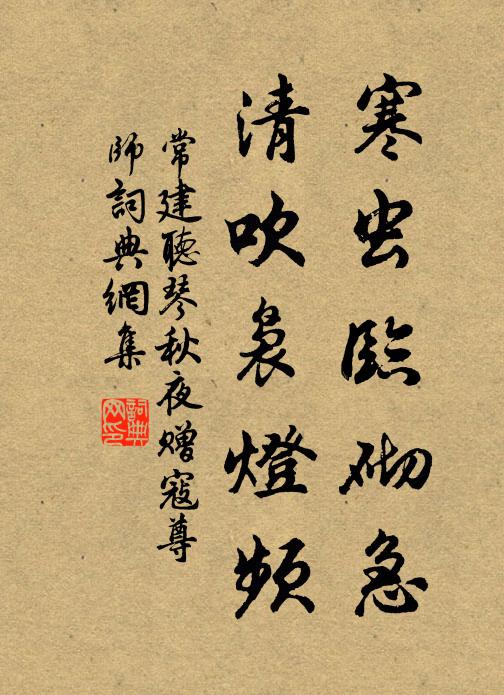 寒虫臨砌急
清吹裊燈頻
常建聽琴秋夜贈寇尊
師詞典網集
詞典
网印